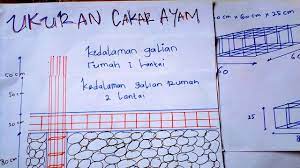 UKURAN CAKAR AYAM
Kedalaman galian
rumah 1 lantai
Kedalaman galian rumah
2 lantai
50 cm
50
80 cm
0 cm x 60 cm x 25 cm
60
60
25